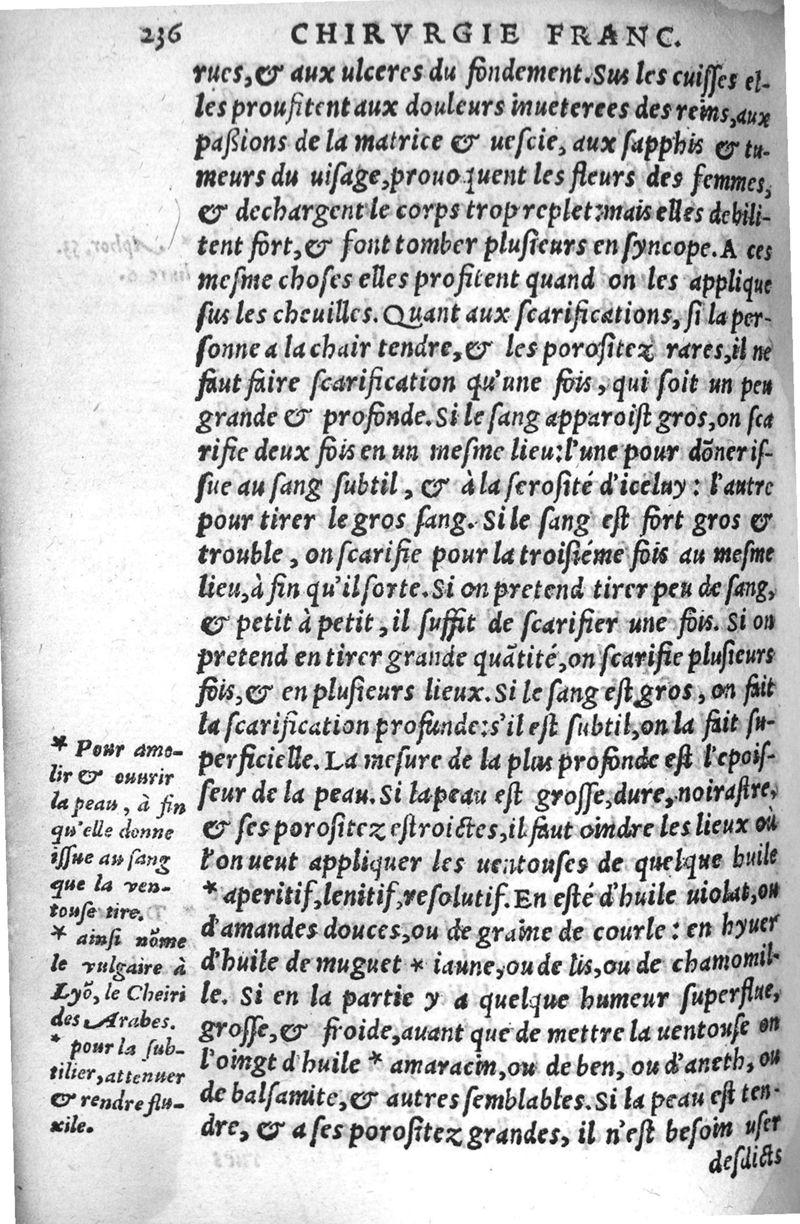 236 CHIRVRGIE FRANC.
rues, & aux ulceres du fondement. Sus les cuisses el-
les proufitent aux douleurs inueterees des reins, aux
paßions de la matrice & uescie, aux sapphis & tu-
meurs du uisage, prouoquent les fleurs des femmes,
& dechargent le corps trop replet: mais elles debili-
tent fort, & font tomber plusieurs en syncope. A ces
mesme choses elles profitent quand on les applique
sus les cheuilles. Quant aux scarifications, si la per-
sonne a la chair tendre, & les porositez rares, il ne
faut faire scarification qu'une fois, qui soit un peu
grande & profonde. Si le sang apparoist gros, on sca
rifie deux fois en un mesme lieu: l'une pour dõner is-
sue au sang subtil, & à la serosité d'iceluy: l'autre
pour tirer le gros sang. Si le sang est fort gros &
trouble, on scarifie pour la troisiéme fois au mesme
lieu, à fin qu'il sorte. Si on pretend tirer peu de sang,
& petit à petit, il suffit de scarifier une fois. Si on
pretend en tirer grande quãtité, on scarifie plusieurs
fois, & en plusieurs lieux. Si le sang est gros, on fait
la scarification profunde: s'il est subtil, on la fait su-
perficielle. La mesure de la plus profonde est l'epois-
seur de la peau. Si la peau est grosse, dure, noirastre,
& ses porositez estroictes, il faut oindre les lieux où
l'on ueut appliquer les uentouses de quelque huile
* aperitif, lenitif, resolutif. En esté d'huile uiolat, ou
d'amandes douces, ou de graine de courle: en hyuer
d'huile de muguet * iaune, ou de lis, ou de chamomil-
le. Si en la partie y a quelque humeur superflue,
grosse, & froide, auant que de mettre la uentouse on
l'oingt d'huile * amaracin, ou de ben, ou d'aneth, ou
de balsamite, & autres semblables. Si la peau est ten-
dre, & a ses porositez grandes, il n'est besoin user
desdicts
* Pour amo-
lir & ouurir
la peau, à fin
qu'elle donne
issue au sang
que la ven-
touse tire.
* ainsi nõme
le vulgaire à
Lyõ, le Cheiri
des Arabes.
* pour la sub-
tilier, attenuer
& rendre flu-
xile.